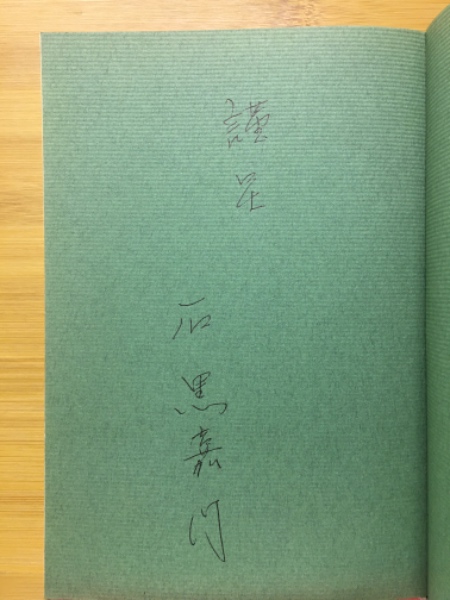 謹呈
石黒嘉門